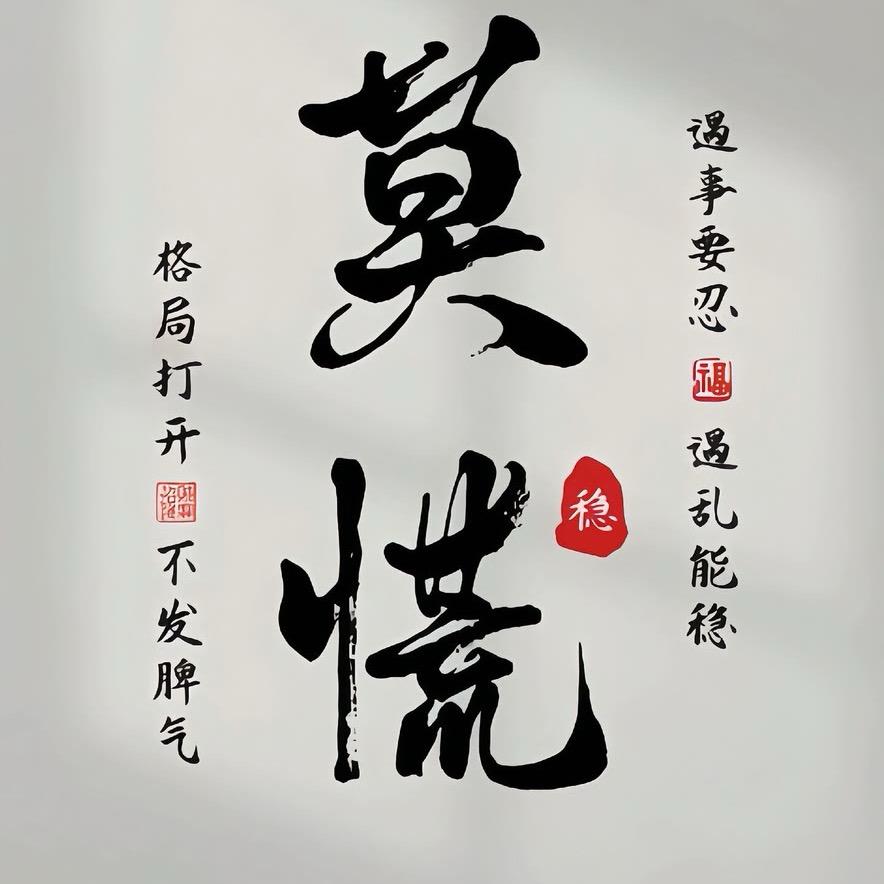 遇事要忍
福
遇乱能稳
莫慌
稳
格局打开
不发脾气